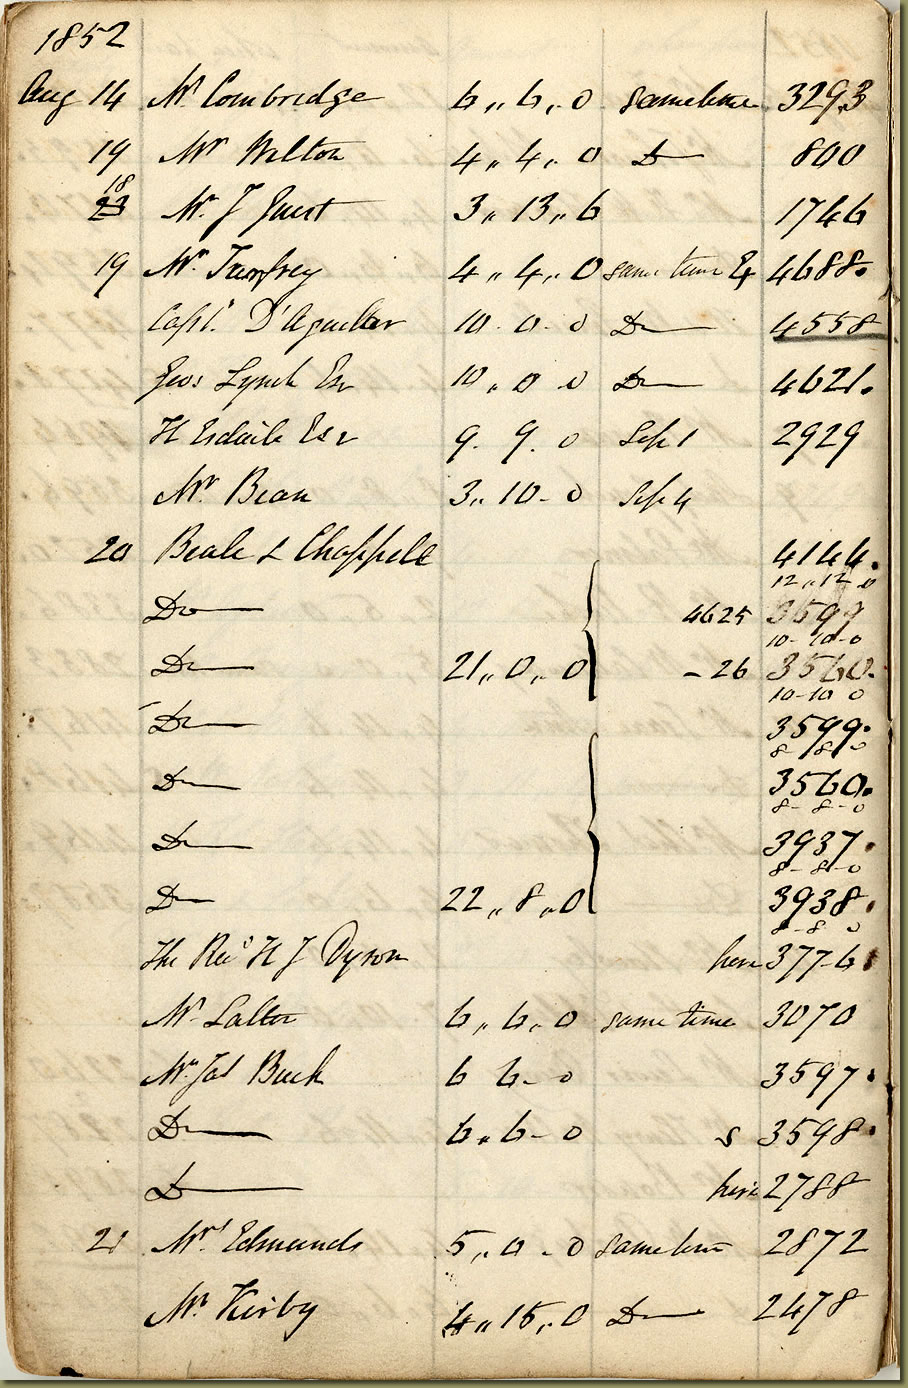 1852
Aug 14 Mr Combridge 6,,6,,0 sametime 3293
19 Mr Wilton 4,,4,,0 Do 800
18
23 Mr. J Guest 3,,13,,6 1746
19 Mr Tumfrey 4,,4,,0 same time & 4688.
Capt. D'Aguilar 10-0-0 Do 4558
Geos Lynch Esr 10,,0 0 Do 4621.
H Esdaile Esr 9. 9. 0 Sep 1 2929
Mr. Bean 3,,10-0 Sep 4
20 Beale & Chappell 4144.
12,,12 0
Do 4625 3599
10-10-0
Do 21,,0,,0 -26 3560.
10-10 0
Do 3599.
8-8 0
Do 3560.
8-8-0
Do 3937.
8-8-0
Do 22,,8,,0 3938.
8-8 0
The Revd H J Dyson here 3776
Mr Salter 6,,6,,0 same time 3070
Mr Jas Buck 6 6-0 3597.
Do 6,,6-0 s 3598.
Do here 2788
21 Mrs Edmunds 5,,0-0 sametime 2872
Mr. Kirby 4,,15,,0 Do 2478